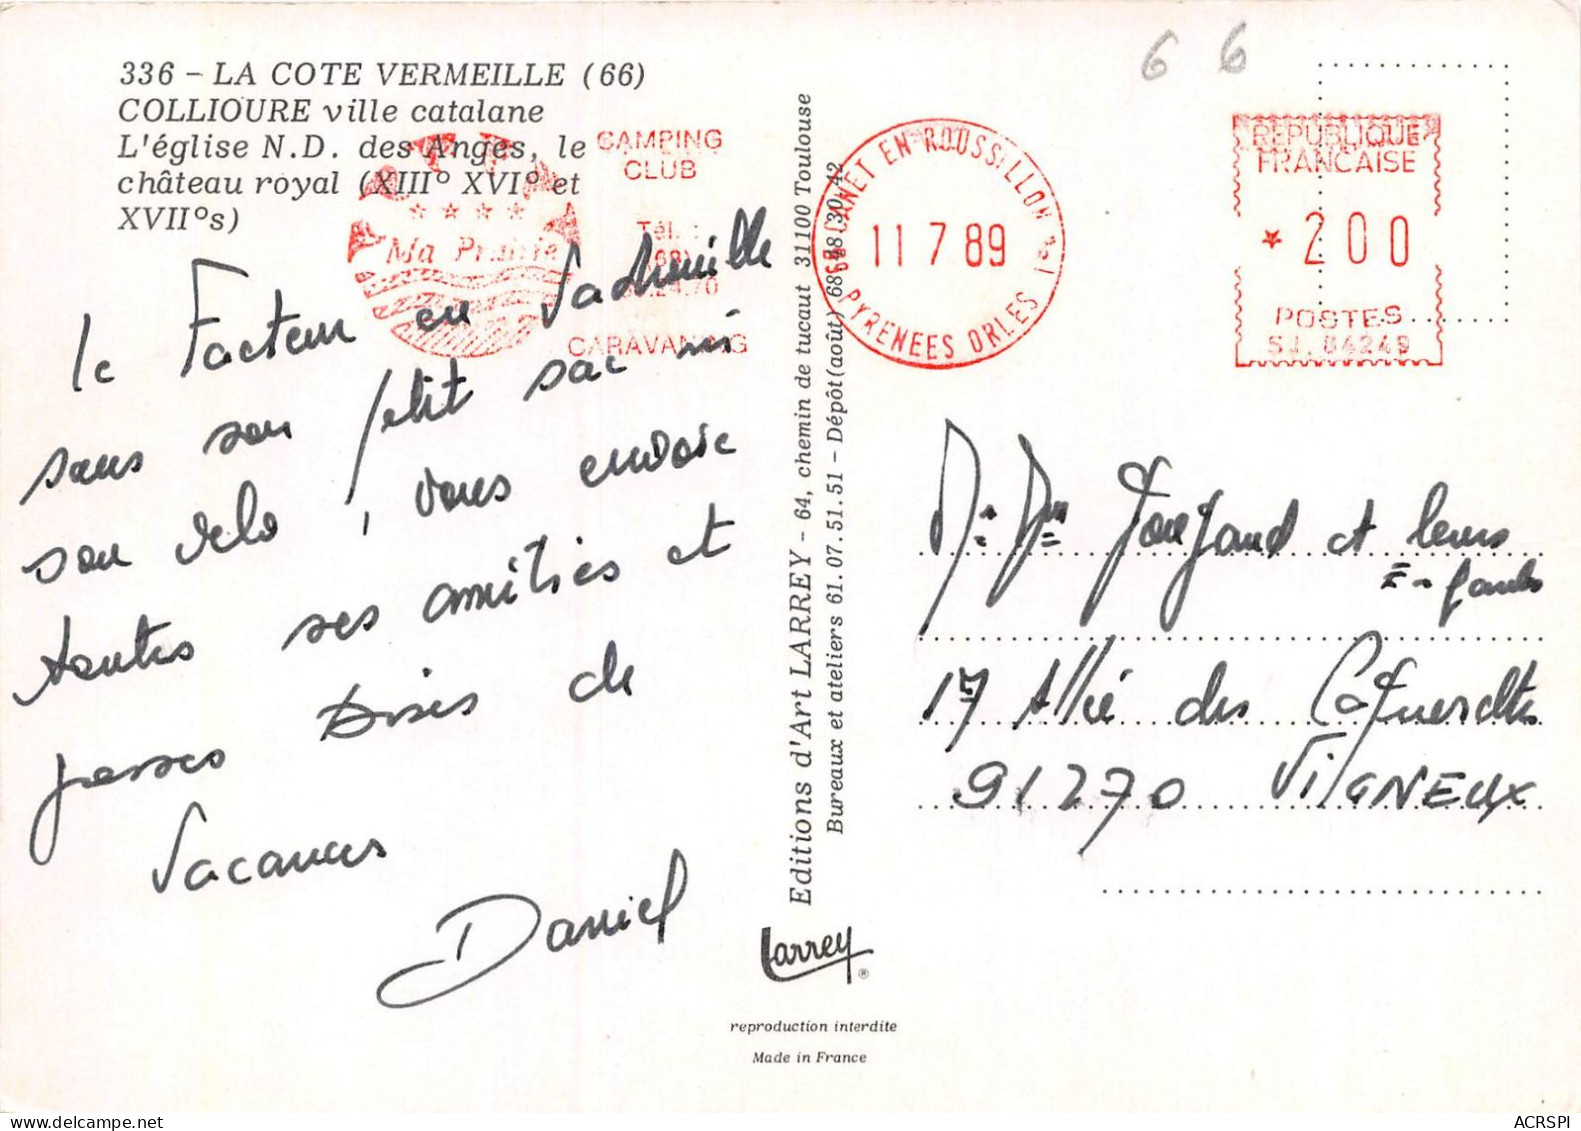 336 - LA COTE VERMEILLE (66)
COLLIOURE ville catalane
L'église N.D. des Anges, le
château royal (XIII° XVI° et
XVII°s)
★ ★ ★ ★
Ma Prairie
CAMPING
CLUB
Tél. :
(68)
CARAVANING
le Facteur en
sans son petit sac ni
son velo, vous envoie
toutes ses amitiés et
passes de
Vacances
Daniel
Editions d'Art LARREY - 64, chemin de tucaut 31100 Toulouse
Bureaux et ateliers 61.07.51.51 - Dépôt (août) 68.48.30.42
Larrey ®
reproduction interdite
Made in France
6 6
66 CANET EN ROUSSILLON
11 7 89
PYRENEES ORLES
REPUBLIQUE
FRANCAISE
* 200
POSTES
SJ. 04249
Mr Mme et leurs
17 Allée des
91270 ViGNEUX
ACRSPI